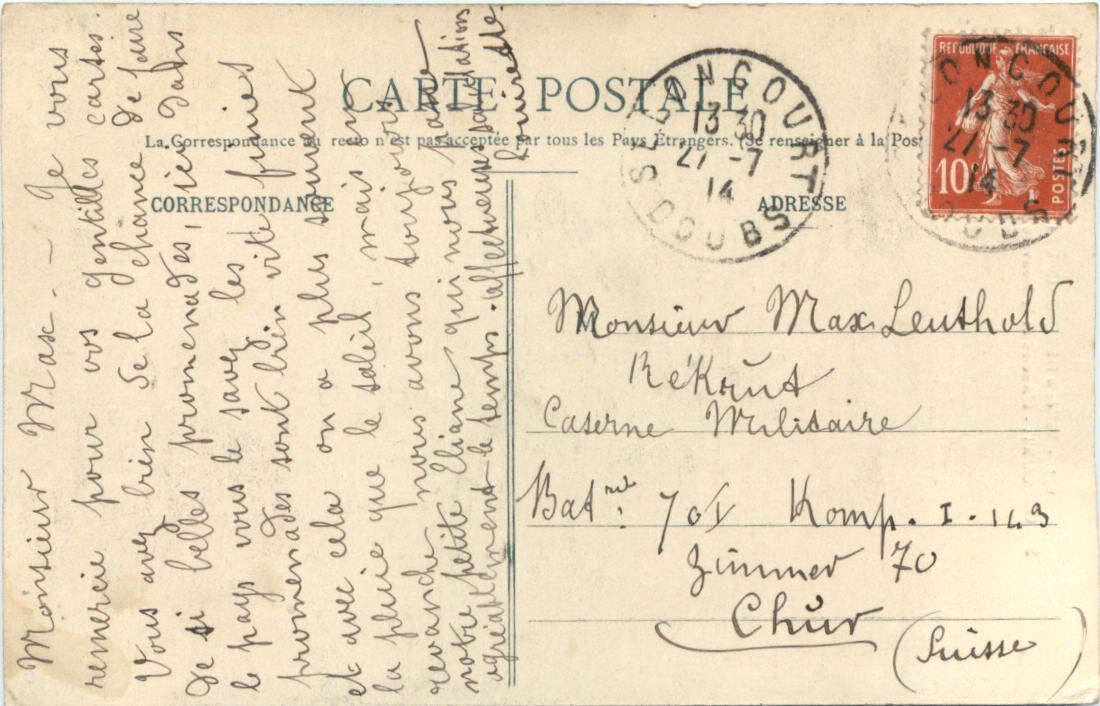 CARTE POSTALE
La Correspondance au recto n'est pas acceptée par tous les Pays Étrangers. (Se renseigner à la Pos
CORRESPONDANCE
ADRESSE
Monsieur Max. — Je vous
remercie pour vos gentilles cartes.
Vous avez bien de la chance de faire
de si belles promenades, ici dans
le pays vous le savez les
promenades sont bien vite finies
et avec cela on a plus souvent
la pluie que le soleil, mais en
revanche nous avons toujours
notre petite Eliane qui nous passe
agréablement le temps. affectueuse salutations
REPUBLIQUE FRANÇAISE
10
POSTES
LONGCOURT
13 30
27 -7
14
DOUBS
ONGCOUR
13 30
27 -7
14
DOUBS
Monsieur Max Leuthold
Rékrut
Caserne Militaire
Bat 70 Komp. I.
Zimmer 70
Chur
(Suisse)